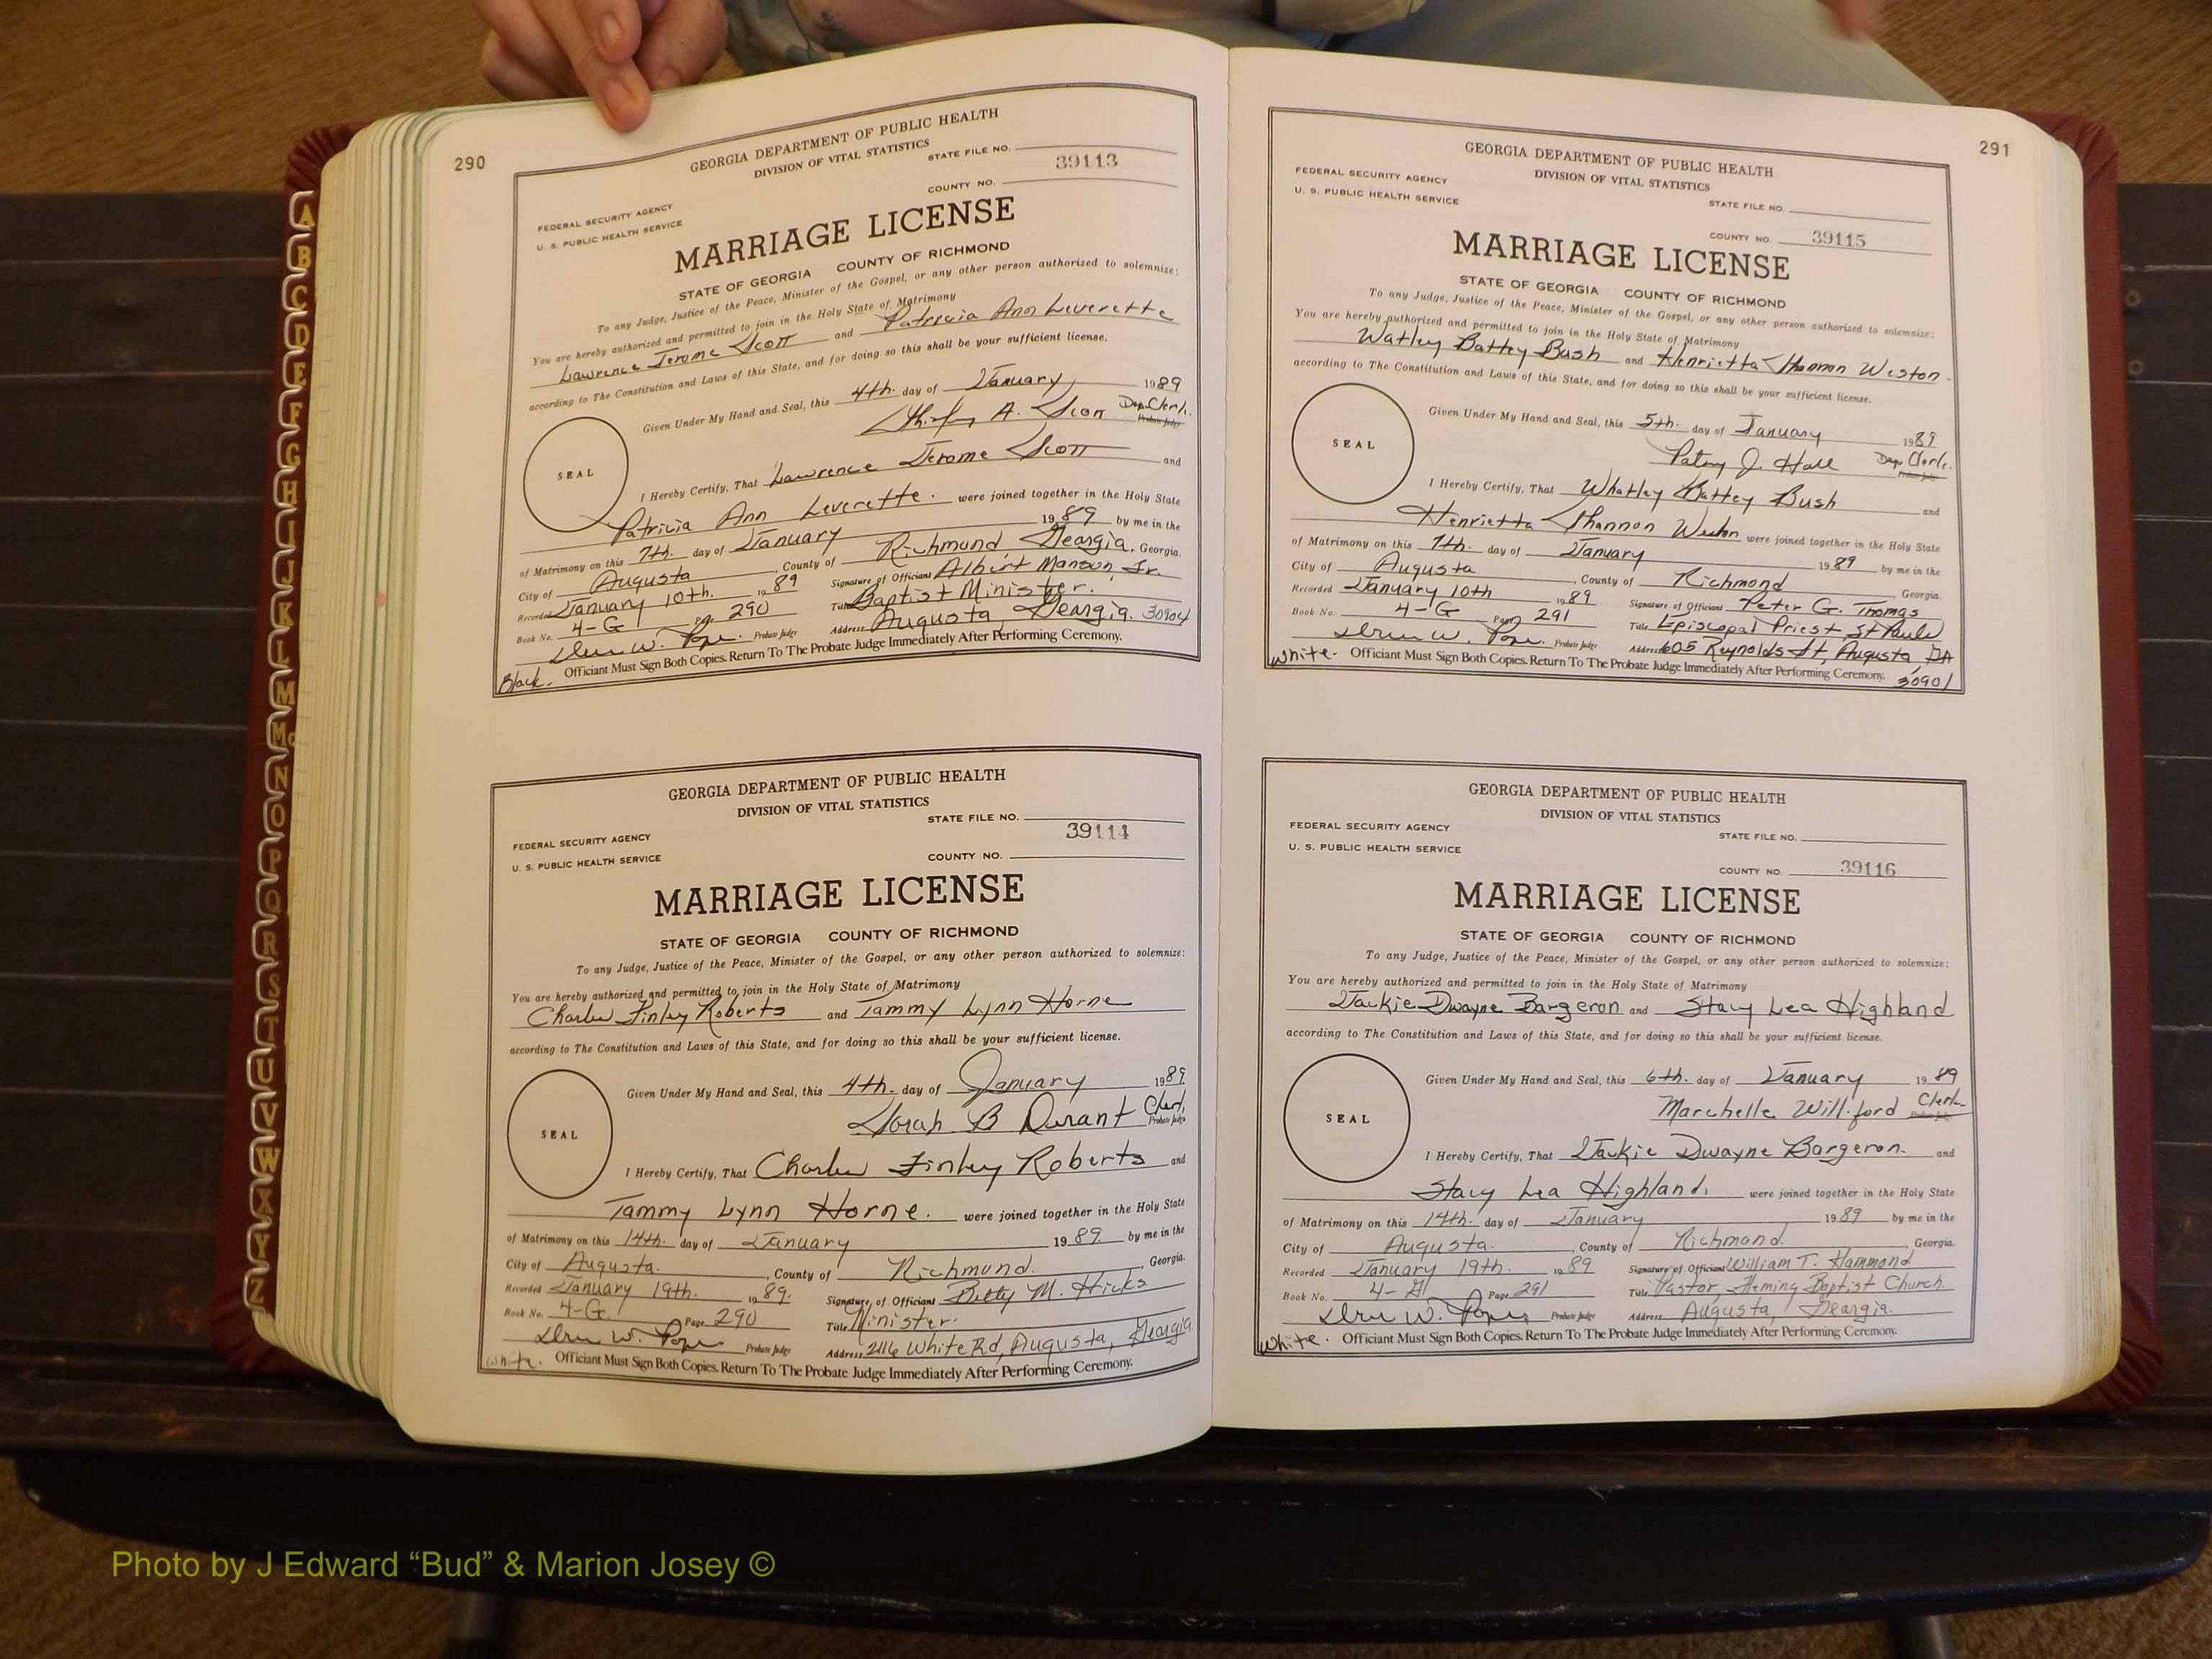 290
GEORGIA DEPARTMENT OF PUBLIC HEALTH
DIVISION OF VITAL STATISTICS
STATE FILE NO.
39113
COUNTY NO.
FEDERAL SECURITY AGENCY
U. S. PUBLIC HEALTH SERVICE
MARRIAGE LICENSE
STATE OF GEORGIA COUNTY OF RICHMOND
To any Judge, Justice of the Peace, Minister of the Gospel, or any other person authorized to solemnize:
You are hereby authorized and permitted to join in the Holy State of Matrimony
Lawrence Jerome Scott and Patricia Ann Leverette
according to The Constitution and Laws of this State, and for doing so this shall be your sufficient license.
Given Under My Hand and Seal, this 4th. day of January, 1989
A. Scott Dep. Clerk.
Probate Judge
SEAL
I Hereby Certify, That Lawrence Jerome Scott and
Patricia Ann Leverette. were joined together in the Holy State
of Matrimony on this 7th. day of January 1989 by me in the
City of Augusta, County of Richmond, Georgia, Georgia.
Recorded January 10th. 1989 Signature of Officiant Albert Manson, Jr.
Book No. 4-G Page 290 Title Baptist Minister.
W. Pope. Probate Judge Address Augusta, Georgia. 30904
Officiant Must Sign Both Copies. Return To The Probate Judge Immediately After Performing Ceremony.
Black.
GEORGIA DEPARTMENT OF PUBLIC HEALTH
DIVISION OF VITAL STATISTICS
STATE FILE NO.
39114
FEDERAL SECURITY AGENCY
U. S. PUBLIC HEALTH SERVICE
COUNTY NO.
MARRIAGE LICENSE
STATE OF GEORGIA COUNTY OF RICHMOND
To any Judge, Justice of the Peace, Minister of the Gospel, or any other person authorized to solemnize:
You are hereby authorized and permitted to join in the Holy State of Matrimony
Charles Finley Roberts and Tammy Lynn Horne
according to The Constitution and Laws of this State, and for doing so this shall be your sufficient license.
Given Under My Hand and Seal, this 4th. day of January 1989
B Durant Clerk,
Probate Judge
SEAL
I Hereby Certify, That Charles Finley Roberts and
Tammy Lynn Horne. were joined together in the Holy State
of Matrimony on this 14th. day of January 1989. by me in the
City of Augusta. , County of Richmond. , Georgia.
Recorded January 19th. 1989. Signature of Officiant Betty M. Hicks
Book No. 4-G. Page 290 Title Minister.
W. Pope Probate Judge Address 2116 White Rd, Augusta, Georgia.
White. Officiant Must Sign Both Copies. Return To The Probate Judge Immediately After Performing Ceremony.
291
GEORGIA DEPARTMENT OF PUBLIC HEALTH
DIVISION OF VITAL STATISTICS
FEDERAL SECURITY AGENCY
U. S. PUBLIC HEALTH SERVICE
STATE FILE NO.
COUNTY NO. 39115
MARRIAGE LICENSE
STATE OF GEORGIA COUNTY OF RICHMOND
To any Judge, Justice of the Peace, Minister of the Gospel, or any other person authorized to solemnize:
You are hereby authorized and permitted to join in the Holy State of Matrimony
Watley Battey Bush and Henrietta Shannon Weston.
according to The Constitution and Laws of this State, and for doing so this shall be your sufficient license.
Given Under My Hand and Seal, this 5th. day of January 1989
J. Hall Dep Clerk.
Probate Judge
SEAL
I Hereby Certify, That Whatley Battey Bush and
Henrietta Shannon Weston were joined together in the Holy State
of Matrimony on this 7th. day of January 1989 by me in the
City of Augusta , County of Richmond , Georgia.
Recorded January 10th 1989 Signature of Officiant Peter G. Thomas
Book No. 4-G Page 291 Title Episcopal Priest, St Pauls
W. Pope. Probate Judge Address 605 Reynolds St, Augusta, GA
White. Officiant Must Sign Both Copies. Return To The Probate Judge Immediately After Performing Ceremony. 30901
GEORGIA DEPARTMENT OF PUBLIC HEALTH
DIVISION OF VITAL STATISTICS
FEDERAL SECURITY AGENCY
U. S. PUBLIC HEALTH SERVICE
STATE FILE NO.
COUNTY NO. 39116
MARRIAGE LICENSE
STATE OF GEORGIA COUNTY OF RICHMOND
To any Judge, Justice of the Peace, Minister of the Gospel, or any other person authorized to solemnize:
You are hereby authorized and permitted to join in the Holy State of Matrimony
Jackie Dwayne Bargeron and Stacy Lea Highland
according to The Constitution and Laws of this State, and for doing so this shall be your sufficient license.
Given Under My Hand and Seal, this 6th. day of January 1989
Marchelle Williford Clerk
Probate Judge
SEAL
I Hereby Certify, That Jackie Dwayne Bargeron. and
Stacy Lea Highland. were joined together in the Holy State
of Matrimony on this 14th. day of January 1989 by me in the
City of Augusta. , County of Richmond. , Georgia.
Recorded January 19th. 1989 Signature of Officiant William T. Hammond
Book No. 4-G Page 291 Title Pastor, Fleming Baptist Church.
W. Pope, Probate Judge Address Augusta, Georgia.
White. Officiant Must Sign Both Copies. Return To The Probate Judge Immediately After Performing Ceremony.
A
B
C
D
E
F
G
H
I
J
K
L
M
Mc
N
O
P
Q
R
S
T
U
V
W
X
Y
Z
Photo by J Edward “Bud” & Marion Josey ©